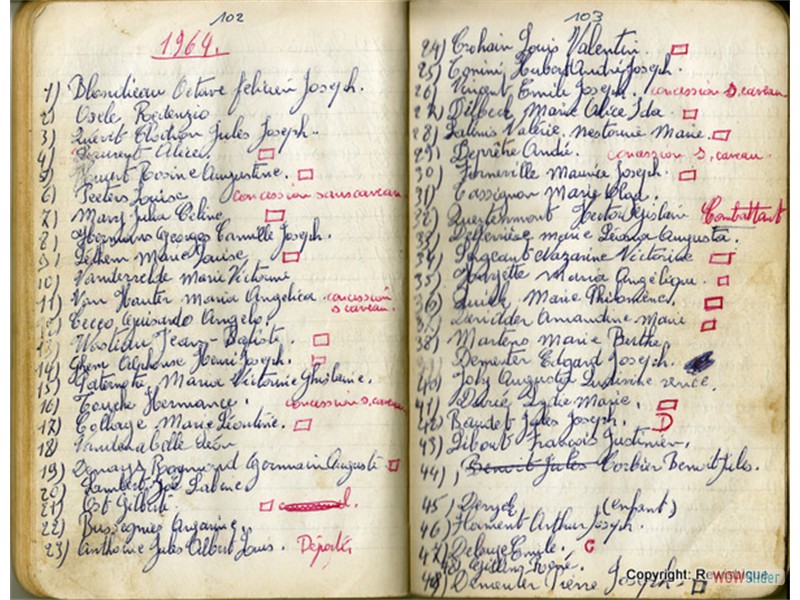 102
1964.
1) Blondieau Octave félicien Joseph.
2) Osele Redenzio
3) Quévit Elodion Jules Joseph.
4) Laurent Alice.
5) Huart Rosine Augustine.
6) Peeters Louise concession sans caveau
7) Mary Julia Céline
8) Hermans Georges Camille Joseph.
9) Marie Louise
10) Vandervelde Marie Victorine
11) Van Hauter Maria Angelica concession s caveau.
12) Cecco Quisardo Angelo,
13) Jean-Baptiste
14) Alphonse Henri Joseph.
15) Paternotte, Maria Victorine Ghislaine.
16) Hermance. concession s, caveau
17) Collage Marie Léontine.
18) Vandenabelle Léon
19) Raymond Germain Auguste
20) Lambert
21) Ost Gilberte
22) Bussegnies
23) Anthoine Jules Albert Louis. Déporté
103
24) Crohain Louis Valentin.
25) Tonini, Hubert André Joseph.
26) Vincent Emile Joseph. concession s, caveau
27) Dilbeck Marie Alice Ida
28) Valérie. Nestorine Marie.
29) Deprêtre André. concession s, caveau
30) Ferneville Maurice Joseph.
31) Cassignon Marie
32) Questermont Hector Ghislain Combattant
33) Marie Léonia Augusta.
34) Nazarine Victorine
35) Maria Angélique.
36) Marie Philomène,
37) Deridder Amandine Marie
38) Martens Marie Berthe
Demester Edgard Joseph.
40) Joly Augusta
41) Lydie Marie,
42) Baudet Jules Joseph.
43) Dibout François Justinien,
44) Benoit Jules Corbier Benoit Jules.
45) (enfant)
46) Flament Arthur Joseph.
47) Emile.
48) René.
49) Pierre Joseph.
Copyright: Rewisbique
WOWSlider